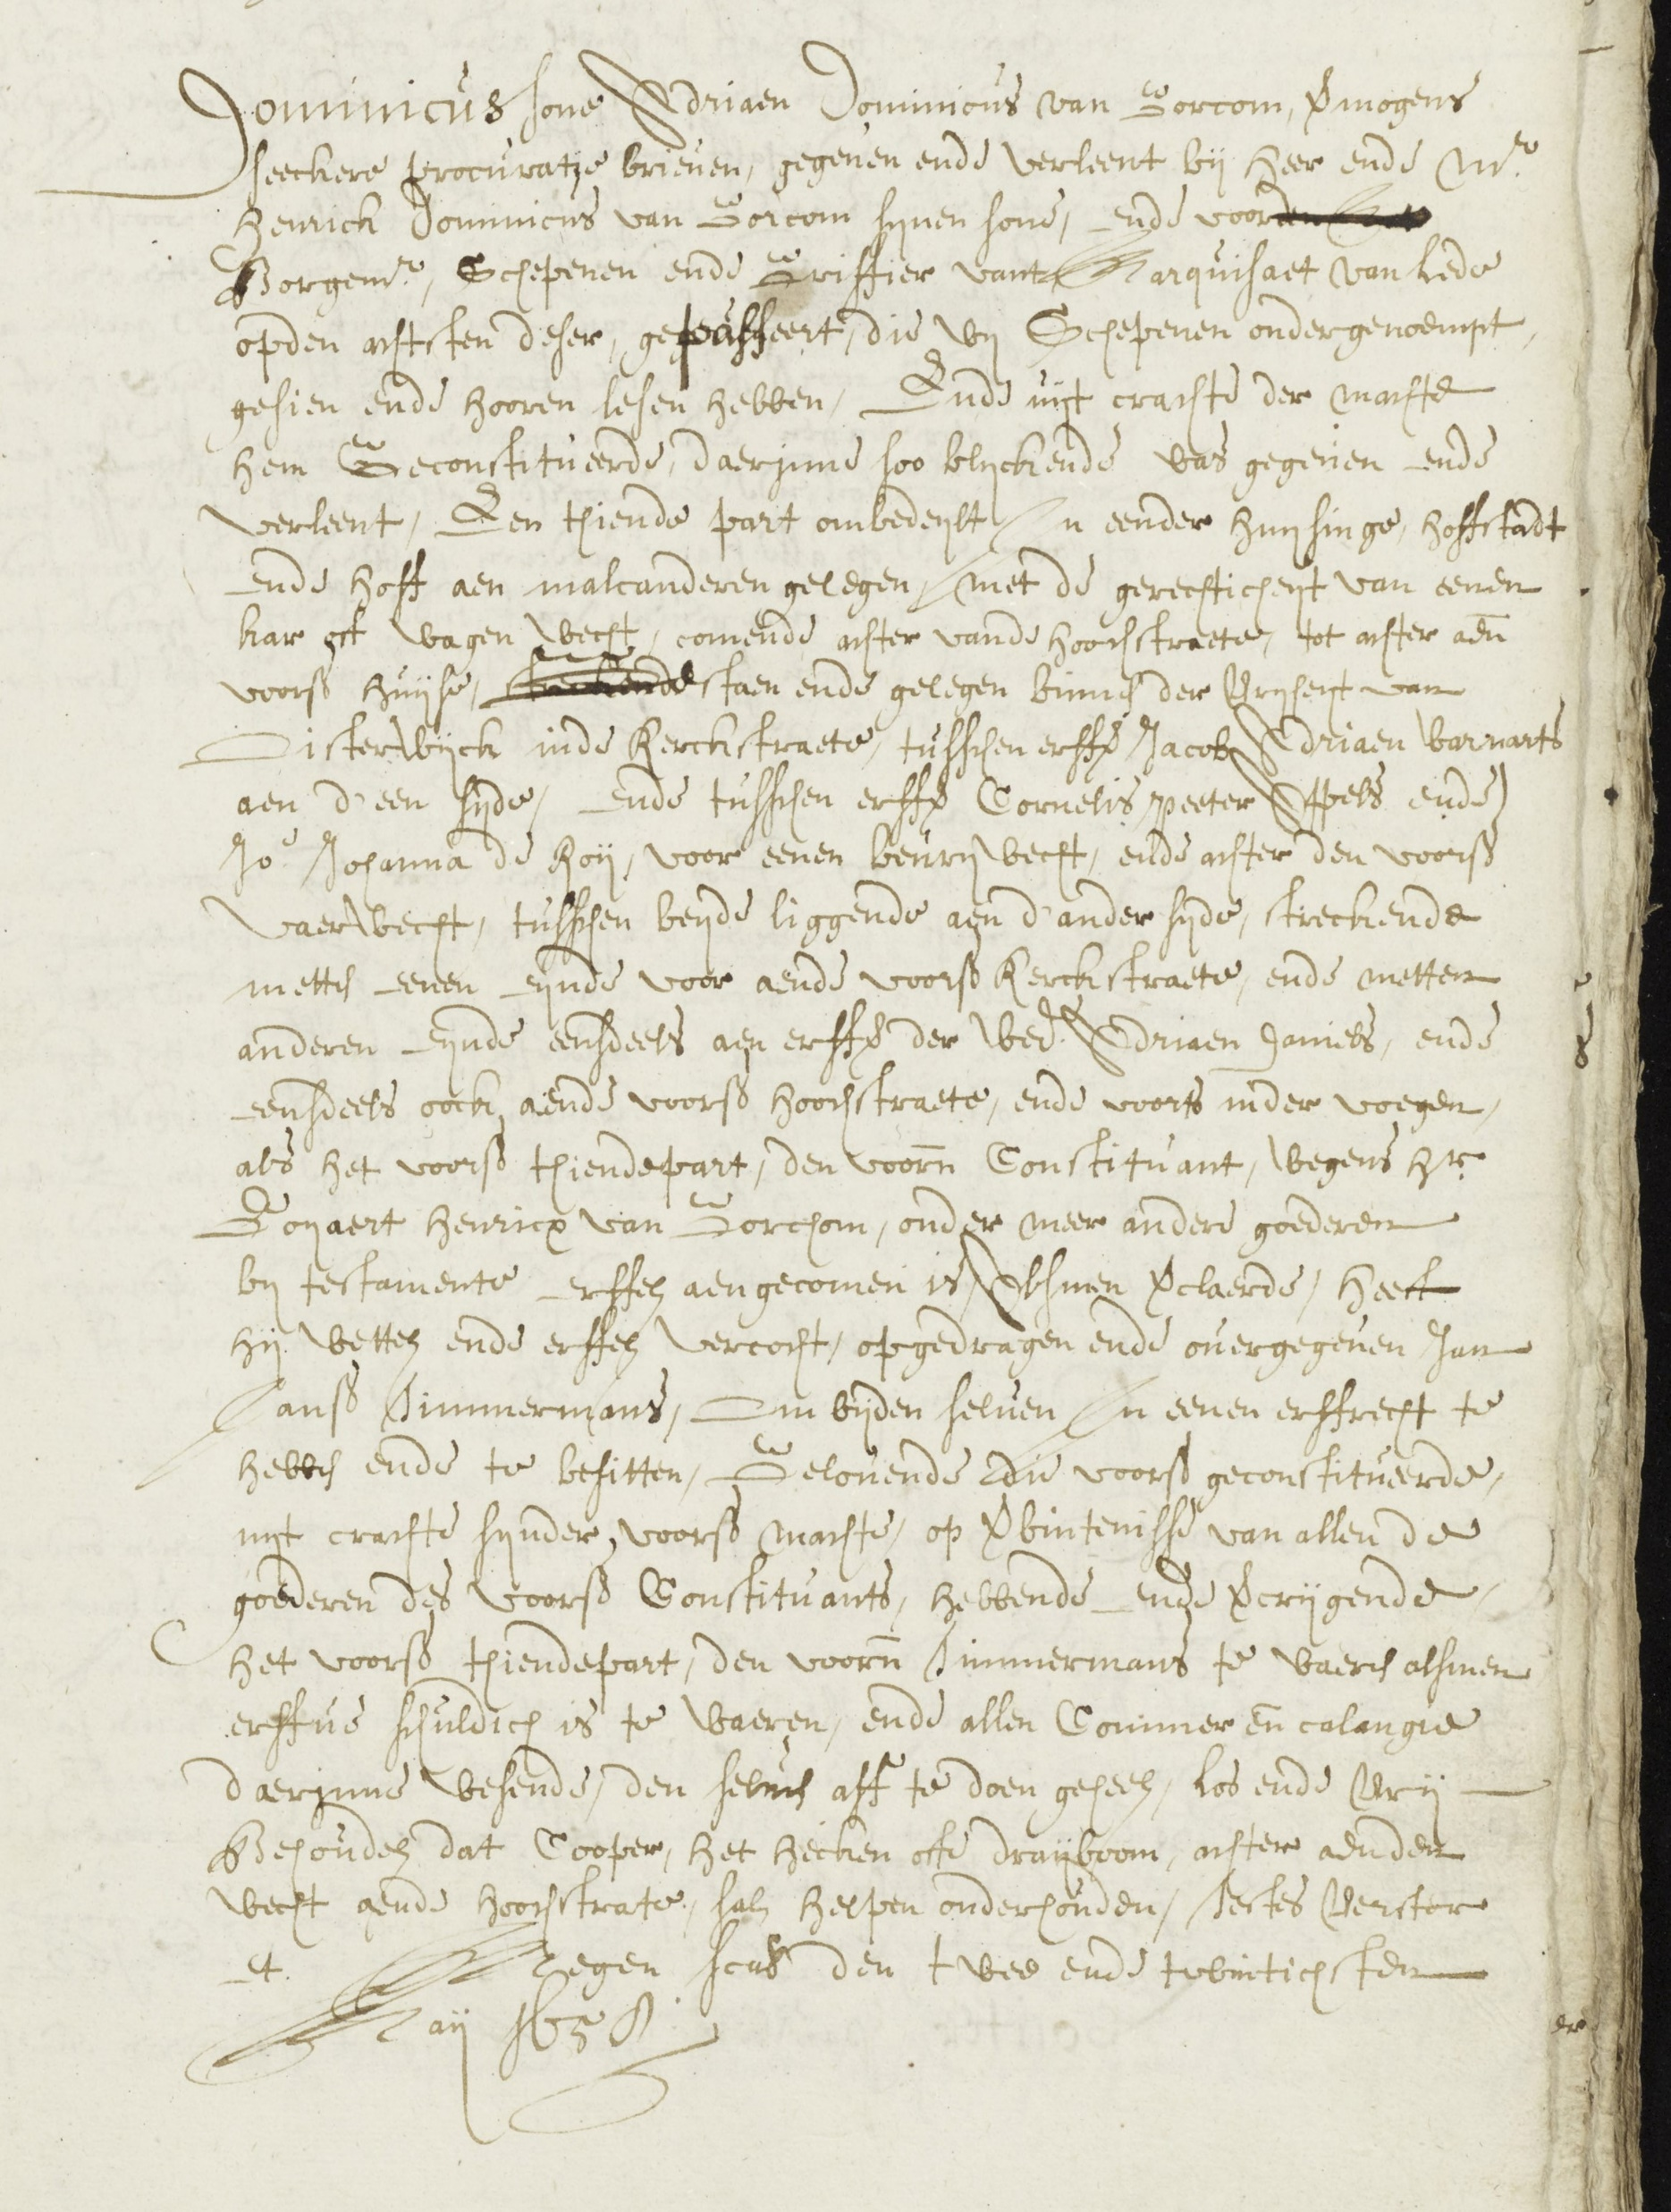 Dominicus sone Adriaen Dominicus van Gorcom, vmogens
seeckere procuratie brieven, gegeven ende verleent bij Heer ende Mr.
Henrick Dominicus van Gorcom synen sone, ende voor
Borgemr., Schepenen ende Griffier vant Marquisaet van Lede
opden achtsten deser, gepasseert, die wij Schepenen ondergenoempt,
gesien ende hooren lesen hebben, Ende uijt crachte der machte
hem Geconstitueerde, daerinne soo blyckende was gegeven ende
verleent, Een thiende part ombedeylt In eender huysinge, hoffstadt
ende hoff aen malcanderen gelegen, met de gerechticheyt van eenen
kar oft wagen wech, comende achter vande hoochstraete, tot achter aen
voors huijse, streckende staen ende gelegen binnen der Vryheyt van
Oisterwijck inde Kerckstraete, tusschen erffe Jacob Adriaen Barnarts
aen d'een syde, ende tusschen erffe Cornelis Peeter Appels ende
Jo. Johanna de Roij, voor eenen beurywech, ende achter den voors
vaerwech, tusschen beyde liggende aen d'ander syde, streckende
metten eenen eynde voor aende voors Kerckstraete, ende metten
anderen eynde eensdeels aen erffe der wed. Adriaen Daniels, ende
eensdeels oock aende voors hoochstraete, ende voorts inder voegen,
als het voors thiendepart, den voorn Constituant, wegens Hr.
Goyaert Henricx van Gorchom, onder meer andere goederen
bij testamente erffel aengecomen is, Alsmen vclaerde, heeft
hij wettel ende erffel vercocht, opgedragen ende overgegeven Jan
Janss Timmermans, Om bijden selven In eenen erffrecht te
hebben ende te besitten, Gelovende die voors geconstitueerde,
uyt crachte synder voors machte, op vbintenisse van allen de
goederen des voors Constituants, hebbende ende vcrijgende,
het voors thiendepart, den voorn Timmermans te waeren alsmen
erffve schuldich is te waeren, ende allen Commer en calangie
daerinne wesende, den selven aff te doen geheel, los ende vrij
Behoudel dat Cooper, het hecken ofte draijboom, achter aenden
wech aende hoochstrate, sal helpen onderhouden, Testes Verster
et Megen scab den twee ende twintichsten
Maij 1658